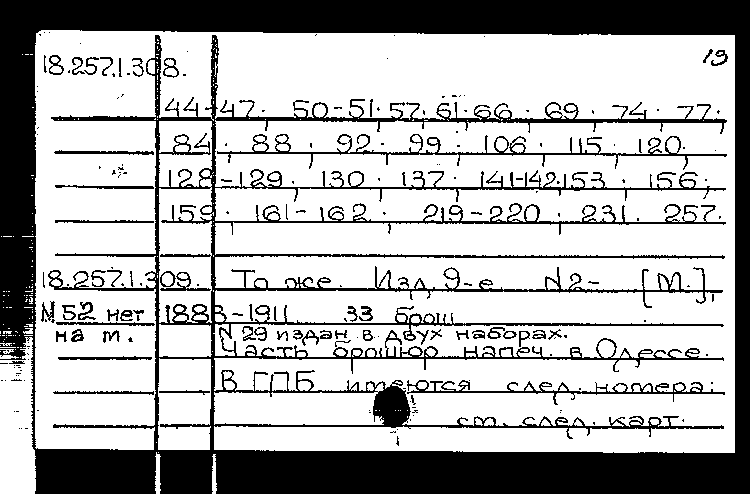 19
18.257.1.308.
44-47; 50-51; 57; 61; 66; 69; 74; 77;
84; 88; 92; 99; 106; 115; 120;
128-129; 130; 137; 141-142; 153; 156;
159; 161-162; 219-220; 231; 257.
18.257.1.309. То же. Изд. 9-е. N2- [М.],
N 52 нет 1883-1911. 33 брош.
на м. N 29 издан в двух наборах.
Часть брошюр напеч. в Одессе.
В ГПБ имеются след. номера:
см. след. карт.